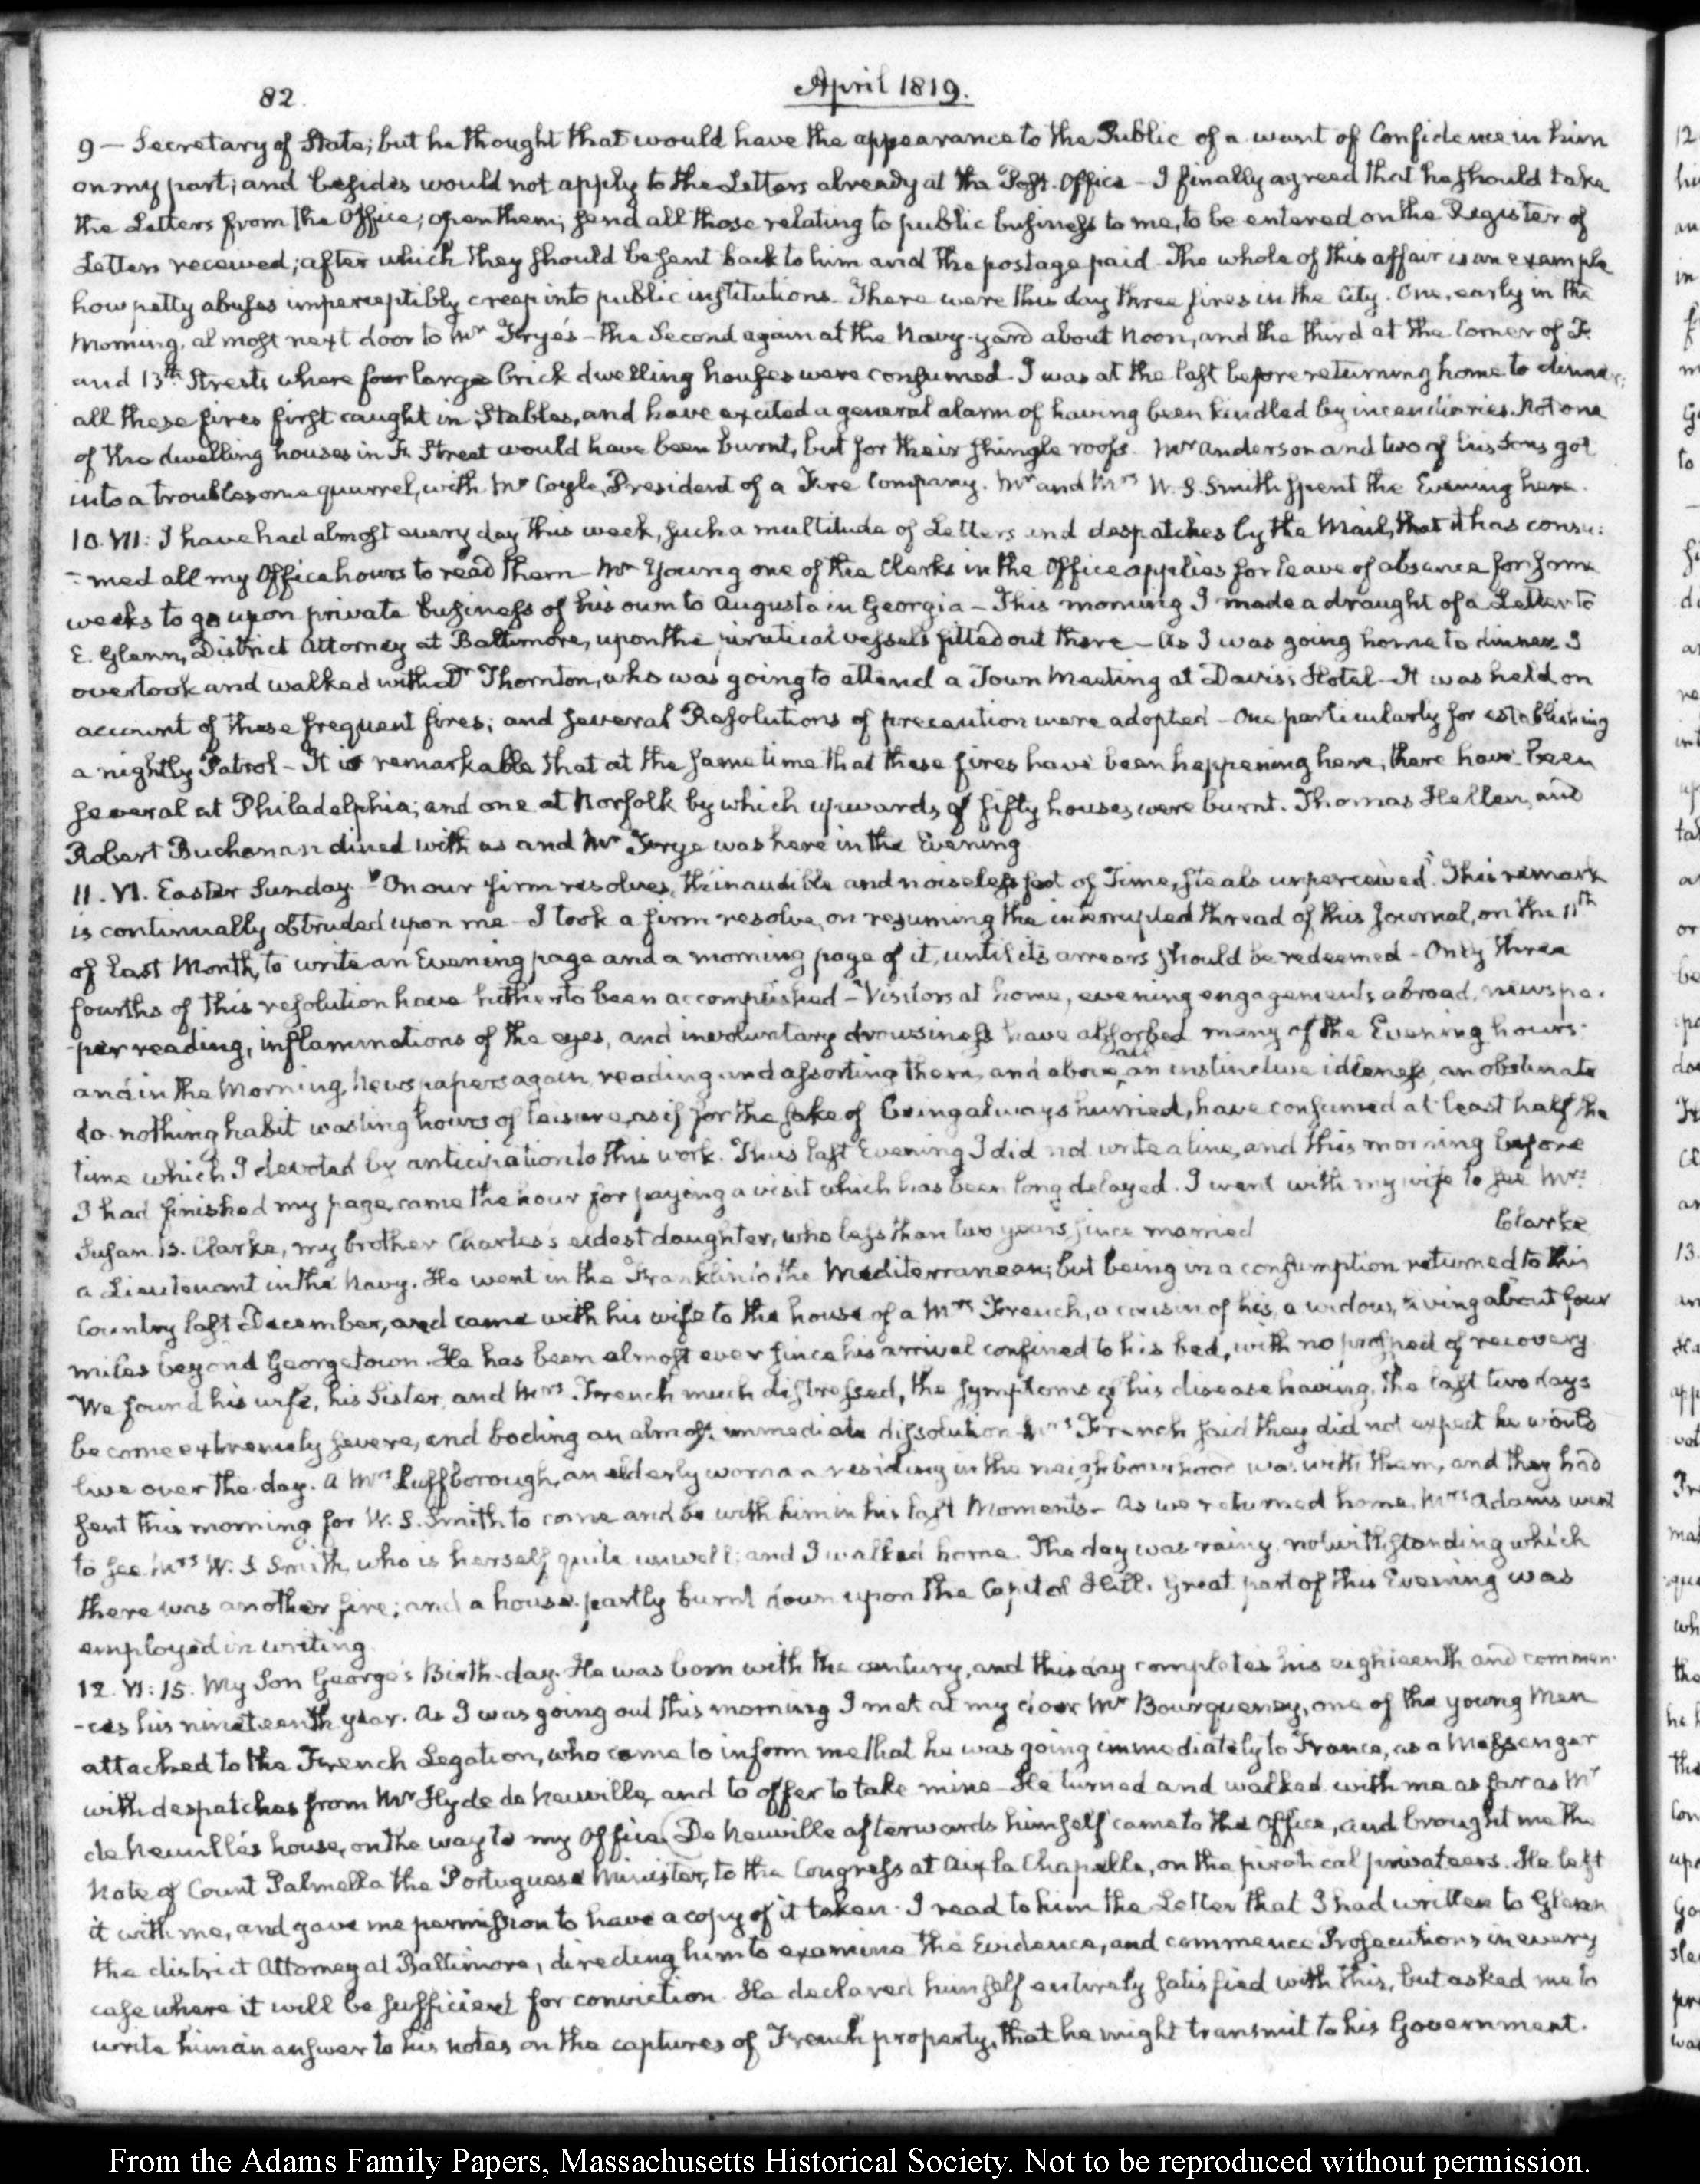 82.
April 1819.
9 — Secretary of State; but he thought that would have the appearance to the Public of a want of Confidence in him
on my part; and besides would not apply to the Letters already at the Post-Office – I finally agreed that he should take
the Letters from the Office; open them; send all those relating to public business to me, to be entered on the Register of
Letters received; after which they should be sent back to him and the postage paid. The whole of this affair is an example
how petty abuses imperceptibly creep into public institutions – There were this day three fires in the City. One, early in the
Morning, almost next door to Mr Frye's – the Second again at the Navy-yard about Noon, and the third at the Corner of F.
and 13th Streets where four large brick dwelling houses were consumed. I was at the last before returning home to dinner;
all these fires first caught in Stables, and have excited a general alarm of having been kindled by incendiaries. Not one
of the dwelling houses in F. Street would have been burnt, but for their shingle roofs. Mr Anderson and two of his Sons got
into a troublesome quarrel, with Mr Coyle, President of a Fire Company. Mr and Mrs W. S. Smith spent the Evening here.
10. VII: I have had almost every day this week, such a multitude of Letters and despatches by the Mail, that it has consu-
-med all my Office hours to read them – Mr Young one of the Clerks in the Office applies for leave of absence for some
weeks to go upon private business of his own to Augusta in Georgia – This morning I made a draught of a Letter to
E. Glenn, District Attorney at Baltimore, upon the piratical vessels fitted out there – As I was going home to dinner I
overtook and walked with Dr Thornton, who was going to attend a Town Meeting at Davis's Hotel – It was held on
account of these frequent fires; and several Resolutions of precaution were adopted – One particularly for establishing
a nightly Patrol – It is remarkable that at the same time that these fires have been happening here, there have been
several at Philadelphia; and one at Norfolk by which upwards of fifty houses were burnt. Thomas Hellen, and
Robert Buchanan dined with us and Mr Frye was here in the Evening
11. VI. Easter Sunday. "On our firm resolves, th'inaudible and noiseless foot of Time, steals unperceived". This remark
is continually obtruded upon me – I took a firm resolve, on resuming the interrupted thread of this Journal, on the 11th
of last Month, to write an Evening page and a morning page of it, until its arrears should be redeemed – Only three
fourths of this resolution have hitherto been accomplished – Visitors at home, evening engagements abroad, newspa-
-per reading, inflammations of the eyes, and involuntary drowsiness have absorbed many of the Evening hours:
and in the Morning, Newspapers again, reading and assorting them, and above all an instinctive idleness, an obstinate
do-nothing habit wasting hours of leisure, as if for the sake of being always hurried, have consumed at least half the
time which I devoted by anticipation to this work. Thus last Evening I did not write a line, and this morning before
I had finished my page, came the hour for paying a visit which has been long delayed. I went with my wife to see Mrs
Susan B. Clarke, my brother Charles's eldest daughter, who less than two years since married Clarke
a Lieutenant in the Navy. He went in the Franklin to the Mediterranean; but being in a consumption returned to this
Country last December, and came with his wife to the house of a Mrs French, a cousin of his, a widow, living about four
miles beyond Georgetown. He has been almost ever since his arrival confined to his bed, with no prospect of recovery.
We found his wife, his Sister, and Mrs French much distressed, the symptoms of his disease having, the last two days
become extremely severe, and boding an almost immediate dissolution. Mrs French said they did not expect he would
live over the day. A Mrs Luffborough, an elderly woman residing in the neighbourhood was with them, and they had
sent this morning for W. S. Smith to come and be with him in his last Moments – As we returned home, Mrs Adams went
to see Mrs W. S Smith, who is herself quite unwell; and I walked home. The day was rainy, notwithstanding which
there was another fire; and a house partly burnt down upon the Capitol Hill. Great part of this Evening was
employed in writing.
12. VI: 15. My Son George's Birth-day. He was born with the century, and this day completes his eighteenth and commen-
-ces his nineteenth year. As I was going out this morning I met at my door Mr Bourqueney, one of the young Men
attached to the French Legation, who came to inform me that he was going immediately to France, as a Messenger
with despatches from Mr Hyde de Neuville, and to offer to take mine – He turned and walked with me as far as Mr
de Neuville's house, on the way to my Office. De Neuville afterwards himself came to the Office, and brought me the
Note of Count Palmella the Portuguese Minister, to the Congress at Aix la Chapelle, on the piratical privateers. He left
it with me, and gave me permission to have a copy of it taken. I read to him the Letter that I had written to Glenn
the district Attorney at Baltimore, directing him to examine the Evidence, and commence Prosecutions in every
case where it will be sufficient for conviction. He declared himself entirely satisfied with this, but asked me to
write him an answer to his notes on the captures of French property, that he might transmit to his Government.
From the Adams Family Papers, Massachusetts Historical Society. Not to be reproduced without permission.